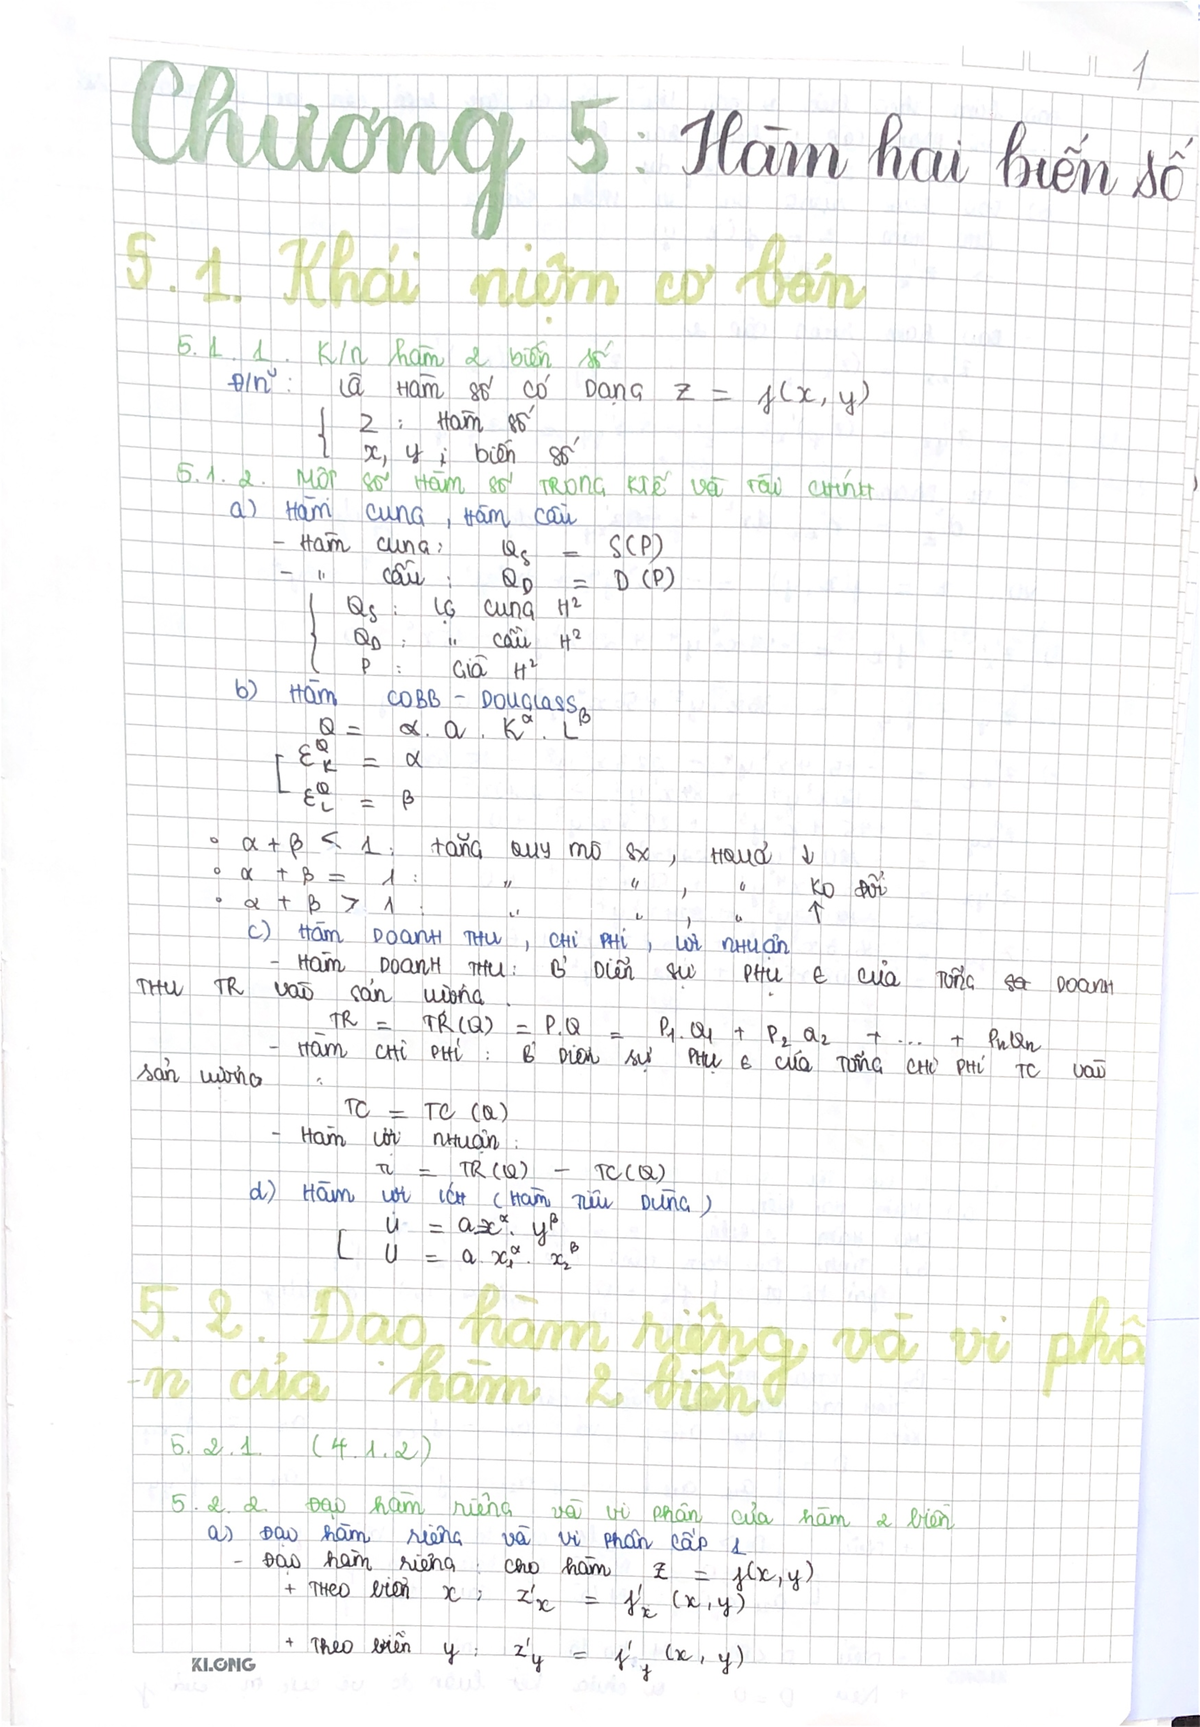 1
Chương 5 : Hàm hai biến số
5.1. Khái niệm cơ bản
5.1.1. K/n hàm 2 biến số
Đ/nº: Là Hàm số có Dạng Z = f(x, y)
{ Z : Hàm số
x, y : biến số
5.1.2. MỘT SỐ Hàm số TRONG KTẾ Và TÀi CHÍNH
a) Hàm cung, Hàm cầu
- Hàm cung: Q_S = S(P)
- " cầu : Q_D = D(P)
{ Q_S : lg cung H²
Q_D : " cầu H²
P : Giá H²
b) Hàm COBB - DOUGLASS
Q = α. a . K^α . L^β
[ Ɛ^Q_K = α
Ɛ^Q_L = β
° α + β < 1 : tăng quy mô sx, Hquả ↓
° α + β = 1 : " " , " KO Đổi
° α + β > 1 : " " , " ↑
c) Hàm DOANH THU, CHI PHÍ, Lợi NHUẬN
- Hàm DOANH THU: B' Diễn sự PHỤ ∈ của Tổng DOANH
THU TR vào sản lượng.
TR = TR(Q) = P.Q = P₁.Q₁ + P₂ Q₂ + ... + PnQn
- Hàm CHI PHÍ : B' Diễn sự PHỤ ∈ của Tổng CHI PHÍ TC vào
sản lượng :
TC = TC (Q)
- Hàm lợi nhuận :
π = TR(Q) - TC(Q)
d) Hàm Lợi ÍCH (Hàm TIÊU DÙNG)
[ U = a.x^α. y^β
U = a.x₁^α. x₂^β
5.2. Đạo hàm riêng và vi phâ
-n của hàm 2 biến
5.2.1. (4.1.2)
5.2.2. Đạo hàm riêng và vi phân của hàm 2 biến
a) Đạo hàm riêng và vi phân cấp 1
- Đạo hàm riêng : cho hàm Z = f(x, y)
+ THeo biến x : z'_x = f'_x (x, y)
+ Theo biến y : z'_y = f'_y (x, y)
KLONG